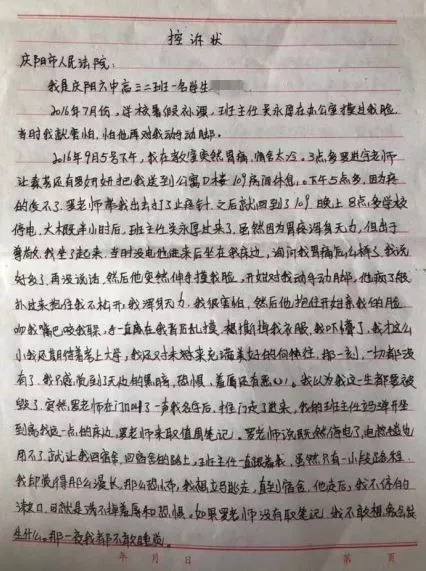 控诉状
庆阳市人民法院：
我是庆阳六中高三二班一名学生
2016年7月份，学校暑假补课，班主任吴永厚在办公室摸过我脸
当时我就害怕，怕他再对我动手动脚。
2016年9月5号下午，我在教室突然胃病，情况太严，3点多罗进宝老师
让袁茜还有罗妍妍把我送到公寓D楼109房间休息。下午5点多，因为疼
的受不了，罗老师带我出去打了止疼针，之后就回到了109，晚上8点多学校
停电，大概半小时后，班主任吴永厚过来了，虽然因为胃疼浑身无力，但出于
尊敬我坐了起来，当时没电他进来后坐在我床边，询问我胃病怎么样了，我说
好多了，再没说话，然后他突然伸手摸我脸，开始对我动手动脚，他疯了般
扑过来抱住我不松开，我浑身无力，我很害怕，然后他抱住开始亲我的脸
吻我嘴巴咬我耳朵，手一直在我背后乱摸，想撕掉我衣服，我吓懵了，我才这么
小我还期待着考上大学，我还对未来充满美好的向往，那一刻，一切都没
有了，我只感觉到了无边的黑暗，恐惧，羞辱还有恶心。我以为我这一生都要被
毁了，突然罗老师在门口叫了一声我名后，推门走了进来，我的班主任吗弹开坐
到离我远一点的床边，罗老师来取值周笔记。罗老师说既然停电了，电热毯也
用不了，就让我回宿舍，回宿舍的路上，班主任一直跟着我，虽然只有一小段路程
我却觉得那么漫长，那么恐怖，我想立马逃走，直到宿舍，他走后，我不停的
漱口，可就是洗不掉羞辱和恐惧。如果罗老师没有取笔记，我不敢想会发
生什么。那一夜我都不敢睡觉。
年 月 日 第 页